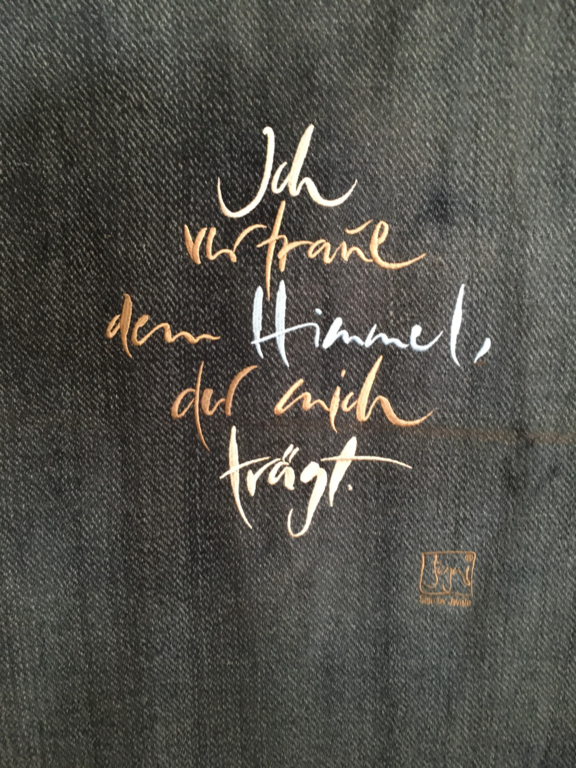 Ich
vertraue
dem Himmel,
der mich
trägt.